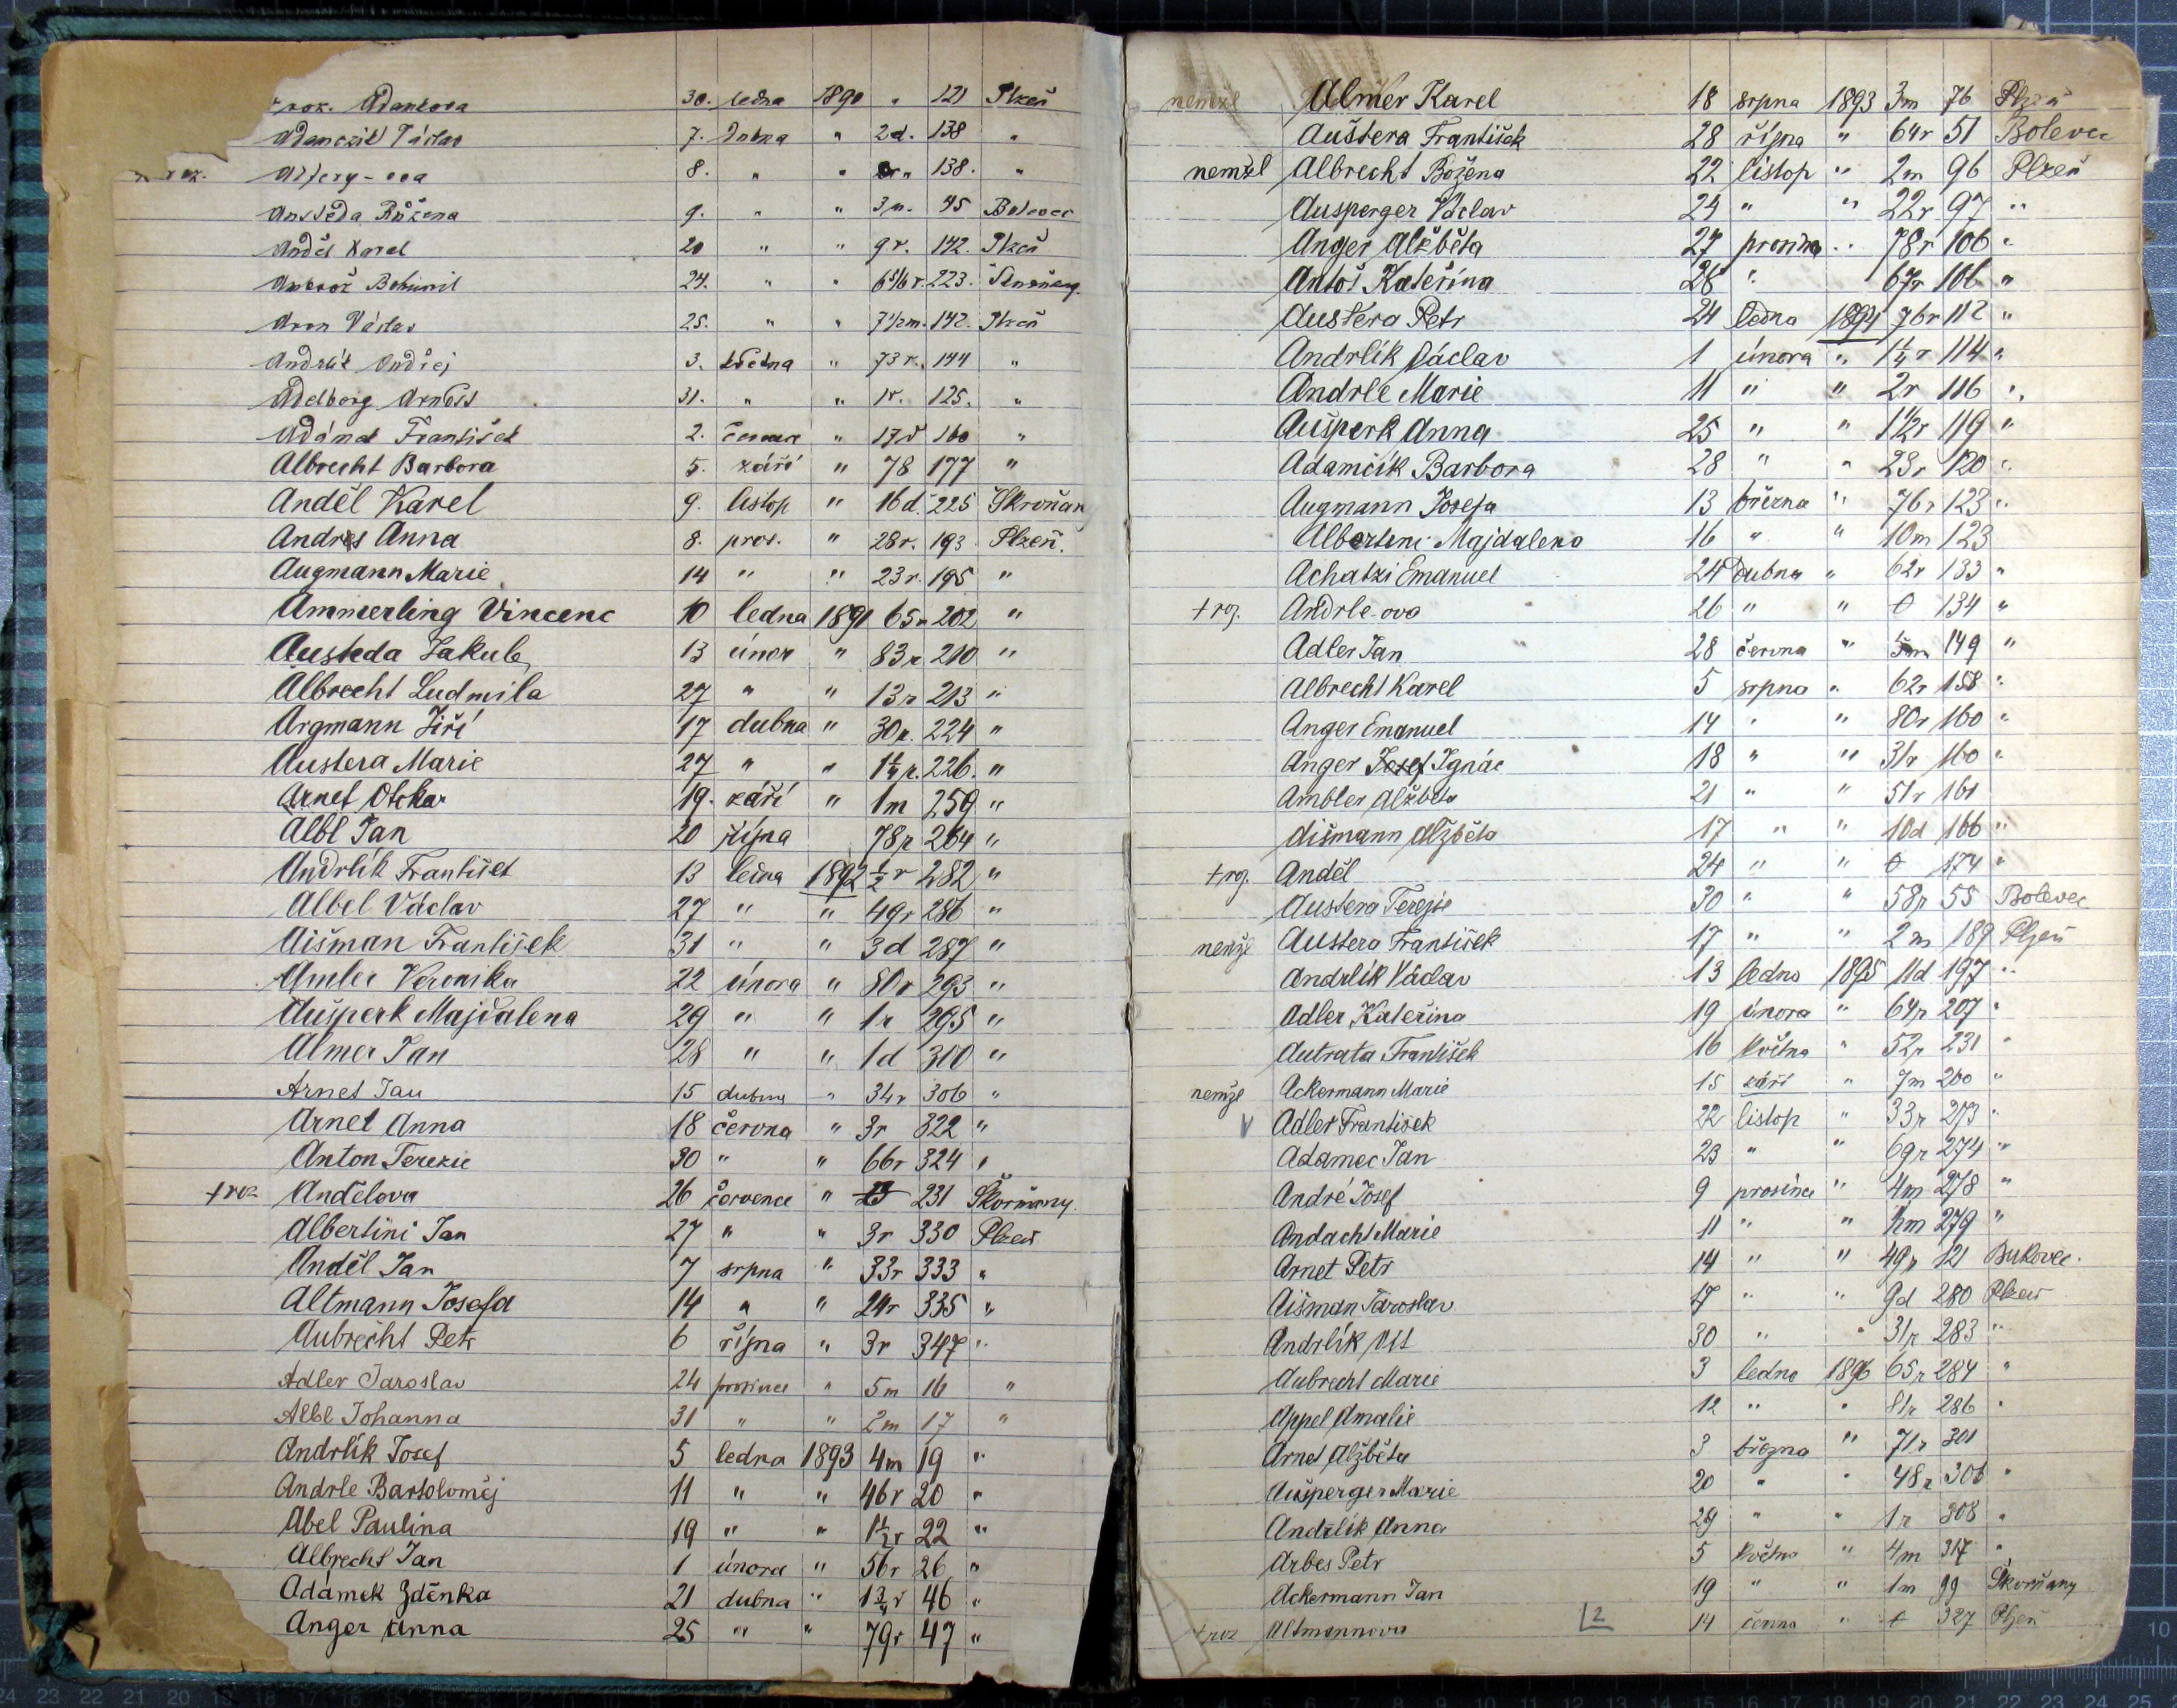 roz. Adamkova 30. ledna 1890 " 121 Plzeň
Adamczik Václav 7. dubna " 2d. 138 "
roz. 8. " " 138. "
Austeda Růžena 9. " " 3 m. 45 Bolevec
Anděl Karel 20 " " 9 r. 142. Plzeň
Ambrož Bohumil 24. " " 6 5/6 r. 223.
Aron Václav 25. " " 7 1/2 m. 142. Plzeň
Andrlík Ondřej 3. května " 73 r. 144 "
Adelborg Arnošt 31. " " 1r. 125. "
Adámek František 2. " 17d 160 "
Albrecht Barbora 5. září " 78 177 "
Anděl Karel 9. listop " 16d. 225 Skvrňan
Andres Anna 8. pros. " 28r. 193 Plzeň.
Augmann Marie 14 " " 23 r. 195 "
Ammerling Vincenc 10 ledna 1891 65r 202 "
Austeda Jakub 13 únor " 83r 210 "
Albrecht Ludmila 27 " " 13r 213 "
Argmann Jiří 17 dubna " 30r. 224 "
Austera Marie 27 " " 1 1/4 r. 226. "
Arnet Otokar 19. září " 1m 259 "
Albl Jan 20 října 78r 264 "
Andrlík František 13 ledna 1892 1/2 r 282 "
Albel Václav 27 " " 49r 286 "
Aišman František 31 " " 3d 287 "
Amler Veronika 22 února " 80r 293 "
Aušperk Majdalena 29 " " 1r 295 "
Almer Jan 28 " " 1d 300 "
Arnet Jan 15 dubna " 34r 306 "
Arnet Anna 18 června " 3r 322 "
Anton Terezie 30 " " 66r 324 "
+ roz Andělova 26 července " 231 Skvrňany.
Albertini Jan 27 " " 3r 330 Plzeň
Anděl Jan 7 srpna " 33r 333 "
Altmann Josefa 14 " " 24r 335 "
Aubrecht Petr 6 října " 3r 347 "
Adler Jaroslav 24 prosince " 5m 16 "
Albl Johanna 31 " " 2m 17 "
Andrlík Josef 5 ledna 1893 4m 19 "
Andrle Bartoloměj 11 " " 46r 20 "
Abel Paulina 19 " " 1 1/2 r 22 "
Albrecht Jan 1 února " 56r 26 "
Adámek Zděnka 21 dubna " 1 3/4 r 46 "
Anger Anna 25 " " 79r 47 "
nemžl Almer Karel 18 srpna 1893 3m 76 Plzeň
Auštera František 28 října " 64r 51 Bolevec
nemžl Albrecht Božena 22 listop " 2m 96 Plzeň
Ausperger Václav 24 " " 22r 97 "
Anger Alžběta 27 prosince " 78r 106 "
Antoš Kateřina 28 " 67r 106 "
Austera Petr 24 ledna 1894 76r 112 "
Andrlík Václav 1 února " 1 1/4 r 114 "
Andrle Marie 11 " " 2r 116 "
Aušperk Anna 25 " " 1 1/2r 119 "
Adamčík Barbora 28 " " 23r 120 "
Augmann Josefa 13 března " 76r 123 "
Albertini Majdalena 16 " " 10m 123
Achatzi Emanuel 24 dubna " 62r 133 "
+ roz. Andrle-ova 26 " " 0 134 "
Adler Jan 28 června " 5m 149 "
Albrecht Karel 5 srpna " 62r 158 "
Anger Emanuel 14 " " 80r 160 "
Anger Josef Ignác 18 " " 31r 160 "
Ambler Alžběta 21 " " 51r 161
Aišmann Alžběta 17 " " 10d 166 "
+ roz. Anděl 24 " " 0 174 "
Austera Terezie 30 " " 58r 55 Bolevec
nemžl Austera František 17 " " 2m 189 Plzeň
Andrlík Václav 13 ledna 1895 11d 197 "
Adler Kateřina 19 února " 64r 207 "
Autrata František 16 května " 52r 231 "
nemžl Ackermann Marie 15 září " 7m 260 "
V Adler František 22 listop " 33r 273 "
Adamec Jan 23 " " 69r 274 "
André Josef 9 prosince " 4m 278 "
Andacht Marie 11 " " 279 "
Arnet Petr 14 " " 49r 121 Bukovec.
Aišman Jaroslav 17 " " 9d 280 Plzeň
Andrlík Vít 30 " " 31r 283 "
Aubrecht Marie 3 ledna 1896 65r 284 "
Appel Amalie 12 " " 81r 286 "
Arnet Alžběta 3 března " 71r 301
Aušperger Marie 20 " " 48r 306 "
Andrlík Anna 29 " " 1r 308 "
Arbes Petr 5 května " 4m 317 "
Ackermann Jan 19 " " 1m 99 Skvrňany
+ roz Altmannova 12 14 června " 0 327 Plzeň